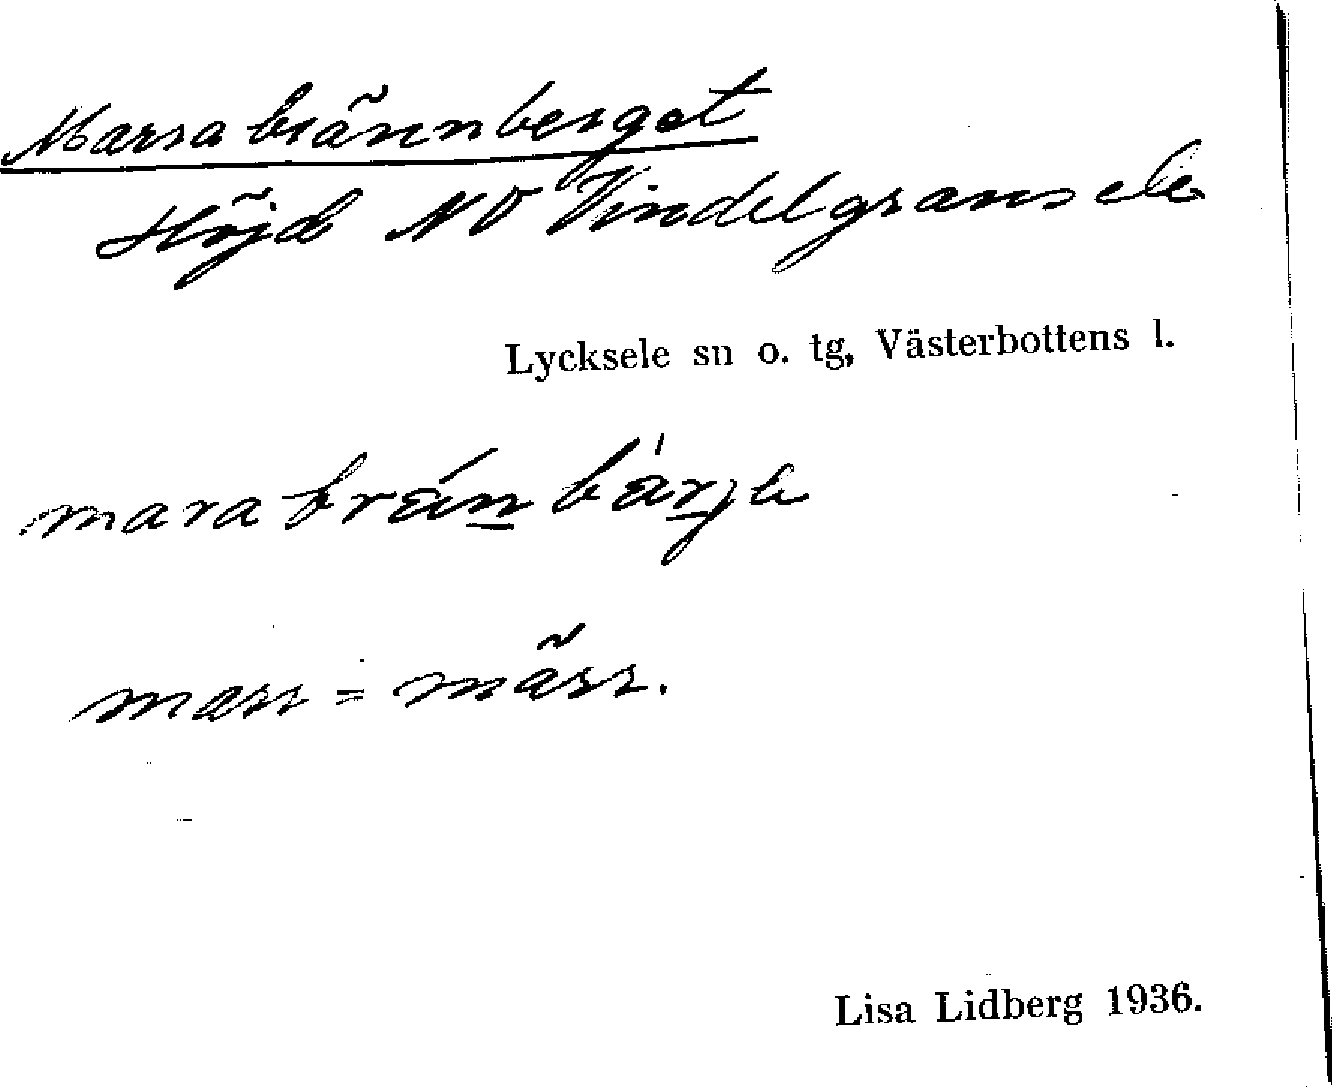 Marrabrännberget
Höjd NV Vindelgransele
Lycksele sn o. tg, Västerbottens l.
marabränbärje
marr = märr.
Lisa Lidberg 1936.